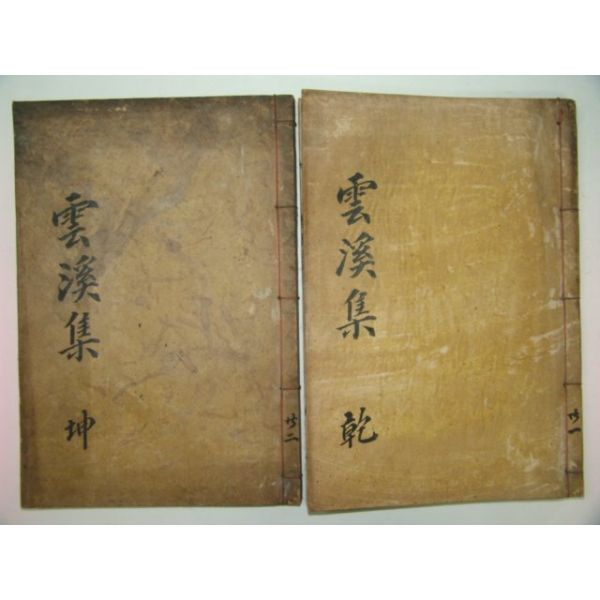 雲溪集 乾
一
雲溪集 坤
二